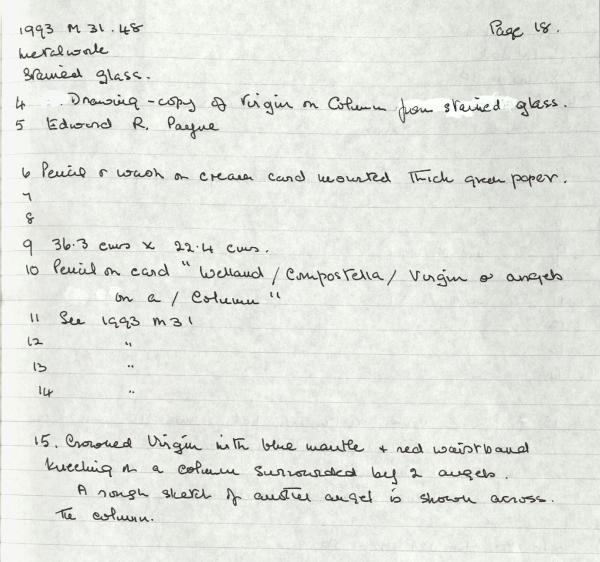 1993 M 31.48 Page 18.
Metalwork
Stained glass.
4 . Drawing - copy of Virgin on Column from stained glass.
5 Edward R. Payne
6 Pencil & wash on cream card mounted thick green paper.
7
8
9 36.3 cms x 22.4 cms.
10 Pencil on card " Welland / Compostella / Virgin & angels
on a / Column "
11 See 1993 M31
12 "
13 "
14 "
15. Crowned Virgin with blue mantle + red waistband
kneeling on a column surrounded by 2 angels.
A rough sketch of another angel is shown across.
the column.